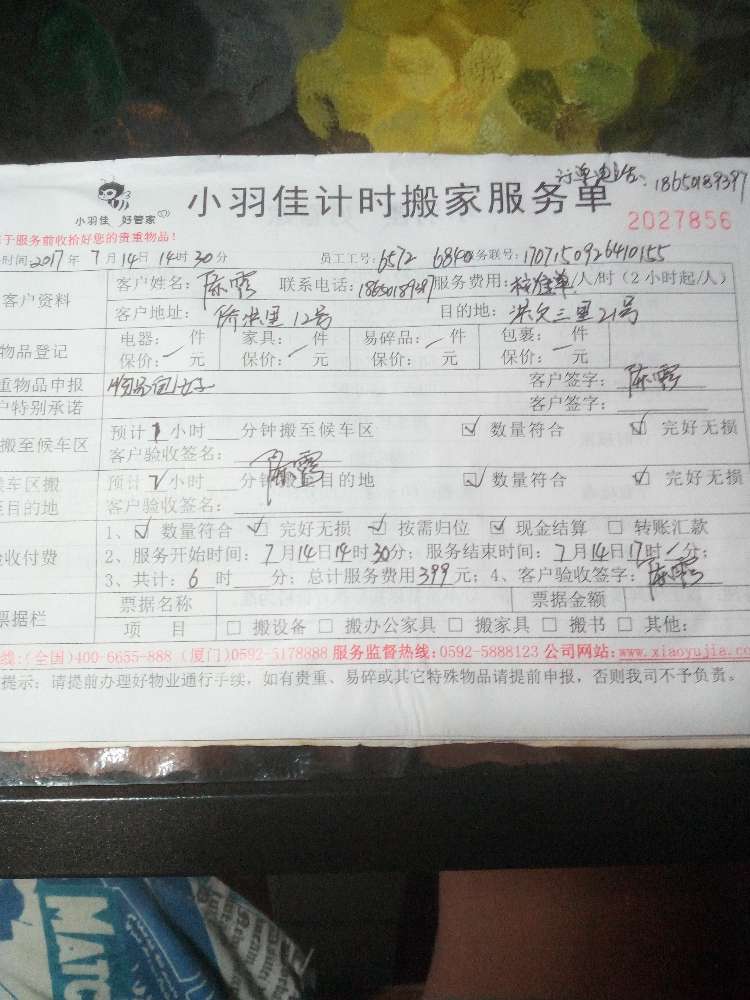 订单电话: 18650189397
小羽佳 好管家
小羽佳计时搬家服务单
2027856
于服务前收拾好您的贵重物品!
时间:2017年 7月14日 14时30分 员工工号:6572 6840 务联号:1707150926410155
客户资料
客户姓名: 联系电话: 服务费用: /人/时(2小时起/人)
客户地址: 12号 目的地: 三里21号
物品登记
电器: 件 家具: 件 易碎品: 件 包裹: 件
保价: 元 保价: 元 保价: 元 保价: 元
重物品申报 客户签字:
户特别承诺 客户签字:
搬至候车区
预计1小时 分钟搬至候车区 ☑ 数量符合 ☑ 完好无损
客户验收签名:
车区搬
至目的地
预计 小时 分钟搬至目的地 ☑ 数量符合 ☑ 完好无损
客户验收签名:
收付费
1、☑ 数量符合 ☑ 完好无损 ☑ 按需归位 ☑ 现金结算 □ 转账汇款
2、服务开始时间:7月14日14时30分;服务结束时间:7月14日17时 分;
3、共计:6时 分;总计服务费用399元;4、客户验收签字:
票据栏
票据名称 票据金额
项 目 □ 搬设备 □ 搬办公家具 □ 搬家具 □ 搬书 □ 其他:
线:(全国)400-6655-888 (厦门)0592-5178888 服务监督热线:0592-5888123 公司网站:www.xiaoyujia.co
提示:请提前办理好物业通行手续,如有贵重、易碎或其它特殊物品请提前申报,否则我司不予负责。
MATC